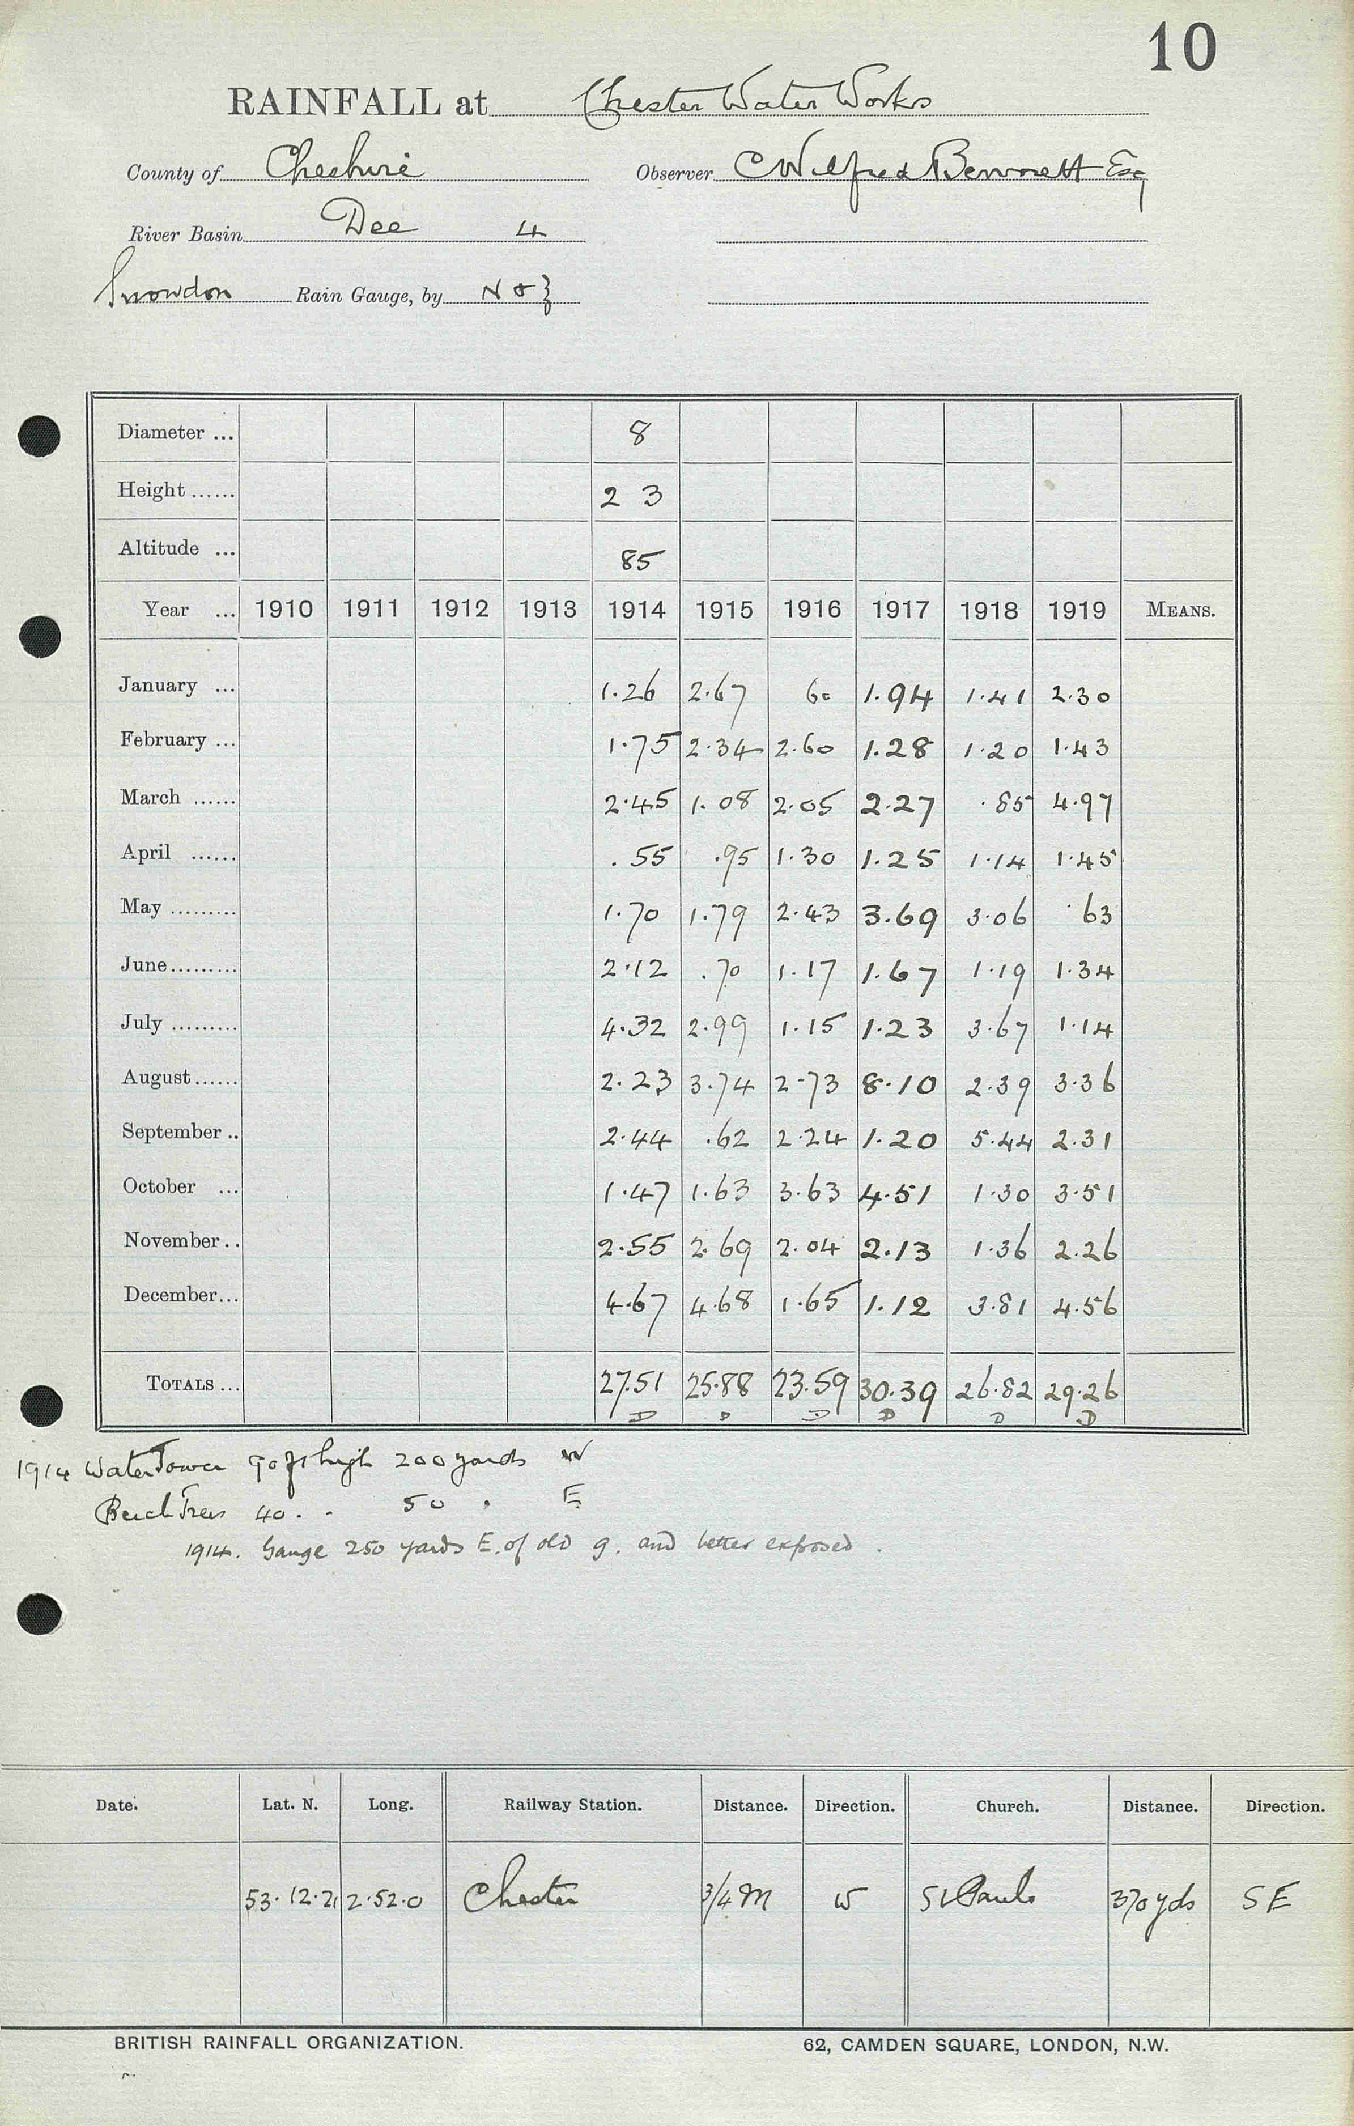 10
RAINFALL at Chester Water Works
County of Cheshire Observer C Wilfred Bennett Esq
River Basin Dee 4
Snowdon Rain Gauge, by N & Z
Diameter ... 8
Height ...... 2 3
Altitude ... 85
Year ... 1910 1911 1912 1913 1914 1915 1916 1917 1918 1919 MEANS.
January ... 1.26 2.67 60 1.94 1.41 2.30
February ... 1.75 2.34 2.60 1.28 1.20 1.43
March ...... 2.45 1.08 2.05 2.27 .85 4.97
April ...... .55 .95 1.30 1.25 1.14 1.45
May ......... 1.70 1.79 2.43 3.69 3.06 .63
June ......... 2.12 .70 1.17 1.67 1.19 1.34
July ......... 4.32 2.99 1.15 1.23 3.67 1.14
August ...... 2.23 3.74 2.73 8.10 2.39 3.36
September .. 2.44 .62 2.24 1.20 5.44 2.31
October ... 1.47 1.63 3.63 4.51 1.30 3.51
November .. 2.55 2.69 2.04 2.13 1.36 2.26
December ... 4.67 4.68 1.65 1.12 3.81 4.56
TOTALS ... 27.51 25.88 23.59 30.39 26.82 29.26
D D D D D D
1914 Water Tower 90 ft high 200 yards W
Beech Trees 40 . . 50 . E
1914. Gauge 250 yards E. of old g. and better exposed .
Date. Lat. N. Long. Railway Station. Distance. Direction. Church. Distance. Direction.
53.12.21 2.52.0 Chester 3/4 M W St Pauls 370 yds SE
BRITISH RAINFALL ORGANIZATION. 62, CAMDEN SQUARE, LONDON, N.W.